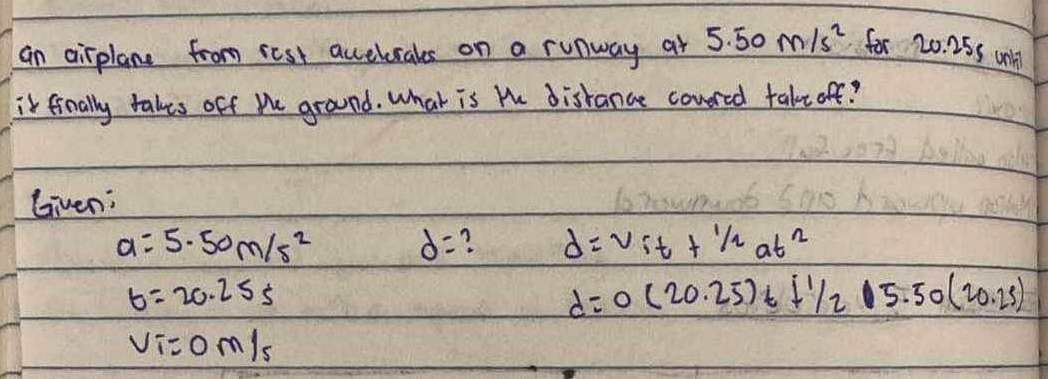 an airplane from rest accelerates on a runway at 5.50 m/s² for 20.25s until
it finally takes off the ground. What is the distance covered take off?
Given:
a = 5.50 m/s² d = ? d = vit + 1/2 at²
t = 20.25 s d = 0 (20.25)t + 1/2 5.50(20.25)
Vi = 0 m/s